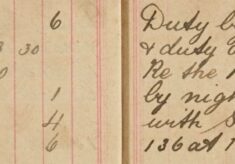 6
30
1
4
6
Duty
& duty
Re the
by nigh
with S
136 at